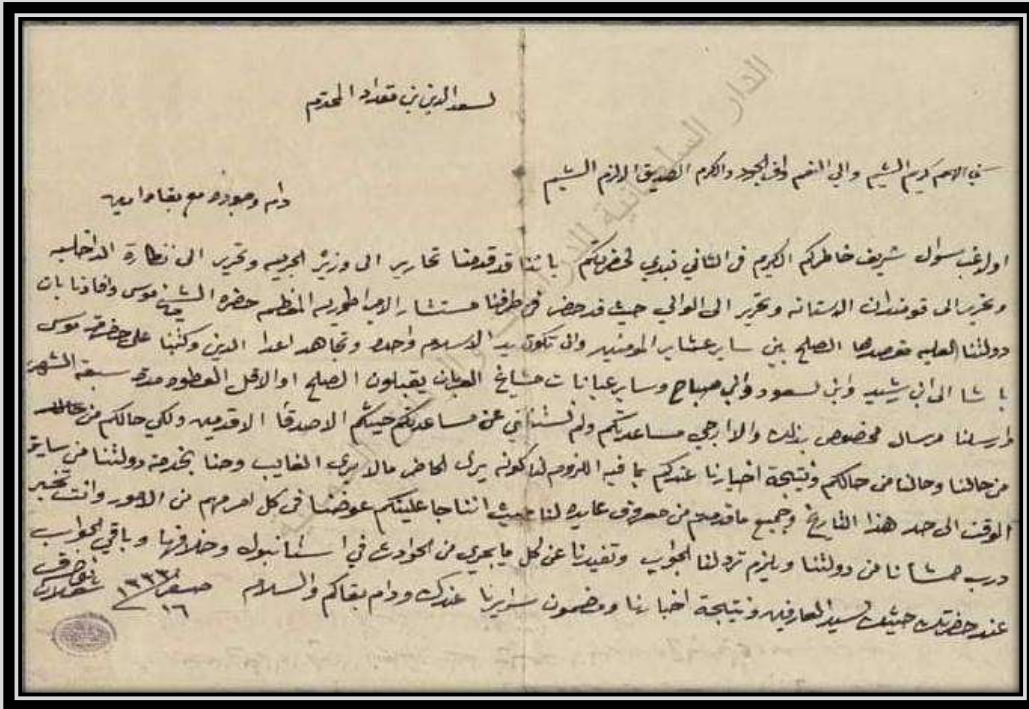 لسعد الدين بن مقداد المحترم
كريم الشيم والي النعم وافي الجود والكرم الصديق الالزم الشيم
دام وجوده مع بقاه امين
اولا غب سوال شريف خاطركم الكريم في الثاني نبدي لحضرتكم باننا قد قدمنا تحارير الى وزير الحربيه وتحرير الى نظارة الداخليه
وتحرير الى قومندان الاستانه وتحرير الى الوالي حيث قد حضر في طرفنا مستشار الامبراطوريه المعظم حضرة الشيخ موسى وافادنا بان
دولتنا العليه مقصدها الصلح بين ساير عشاير المومنين والى تكون يد الاسلام واحده وتجاهد اعدا الدين وكتبنا على حضرة موسى
باشا الى ابن رشيد وابن سعود وابن صباح وساير مشايخ العربان يقبلون الصلح او الاقل العطوه مدة سبعة اشهر
وارسلنا مرسال مخصوص بذلك والا ارجي مساعدتكم ولم نستثني عن مساعدتكم حيثكم الاصدقا الاقدمين ولكي حالكم من
من حالنا وحالنا من حالكم ونتيجة اخبارنا عندكم بما فيه اللزوم لنا كونه يرى الحاضر مالا يرى الغايب وحنا بخدمة دولتنا من سابق
الوقت الى حد هذا التاريخ وجميع ما قدمتم من معروف عايده لنا حيث اننا جاعلينكم عوضنا في كل امر مهم من الامور وانت تخبر
درب ممشانا من دولتنا ويلزم ترد لنا الجواب وتفيدنا عن كل ما يجري من الحوادث في استانبول وخلافها وباقي الجواب
عند حضرتك حيثك سيد العارفين ونتيجة اخبارنا ومضمون سرايرنا عندك ودام بقاكم والسلام
١٦ صفر ١٣٣٣
نواف شعلان
الدار السلفية